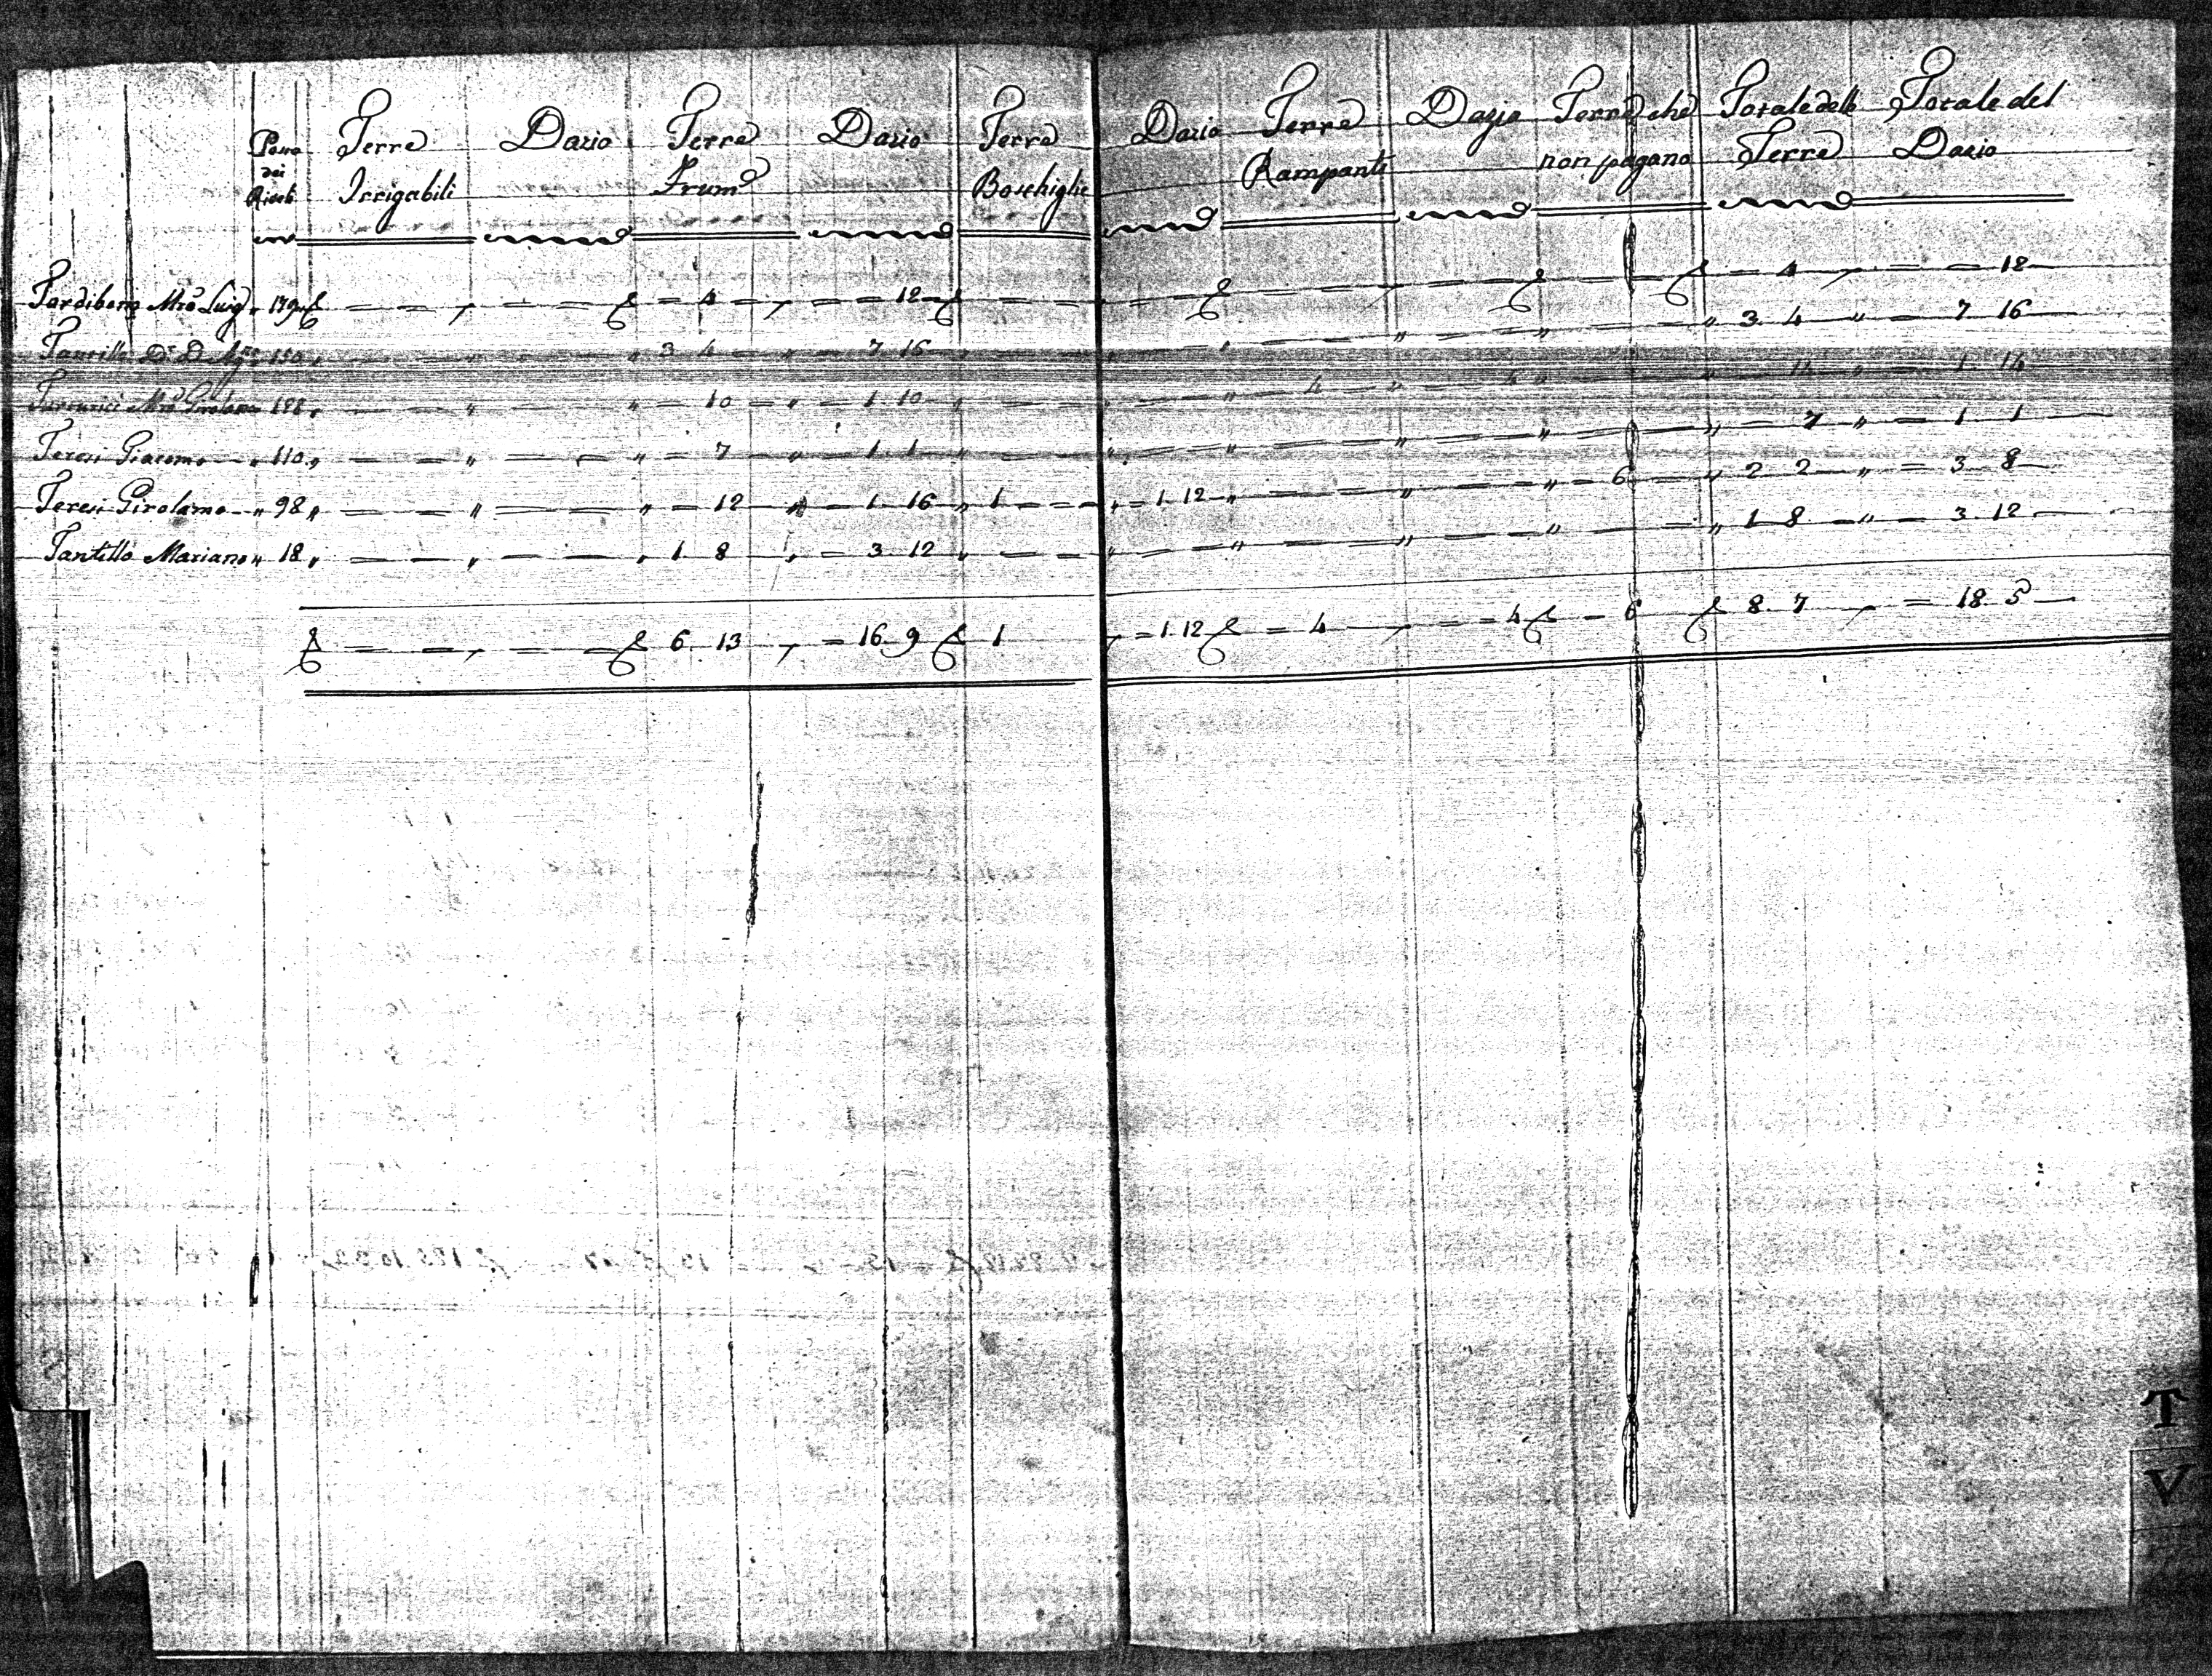 dei Terre Dazio Terre Dazio Terre Dazio Terre Dazio Terre che Totale delle Totale del
Irrigabili Frum Boschighe Rampanti non pagano Terre Dazio
Mro Luigi " 179 = 4 = = 12 = 4 = = 18
3 4 " 7 16 " 3 4 " = 7 16
Mro Girolamo = 10 = " = 1 10 " 4 " 4 " 14 " = 1 14
Teresi Giacomo " 110 " = 7 " = 1 1 " = 7 " = 1 1
Teresi Girolamo " 98 " = 12 " = 1 16 " 1 = = " = 1 12 " = 6 " 2 2 " = 3 8
Tantillo Mariano " 18 " 1 8 " = 3 12 " 1 8 " = 3 12
6 13 = 16 9 1 = 1 12 = 4 = = 4 = 6 8 7 = 18 5
T
V